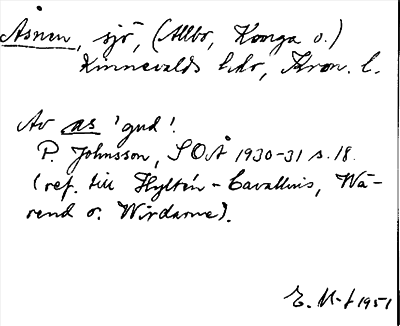 Åsnen, sjö, (Allbo, Konga o.)
Kinnevalds hdr, Kron. l.
Av as 'gud'.
P. Johnsson, SOÅ 1930-31 s. 18.
(ref. till Hyltén-Cavallius, Wä-
rend o. Wirdarne).
E. M-f 1951